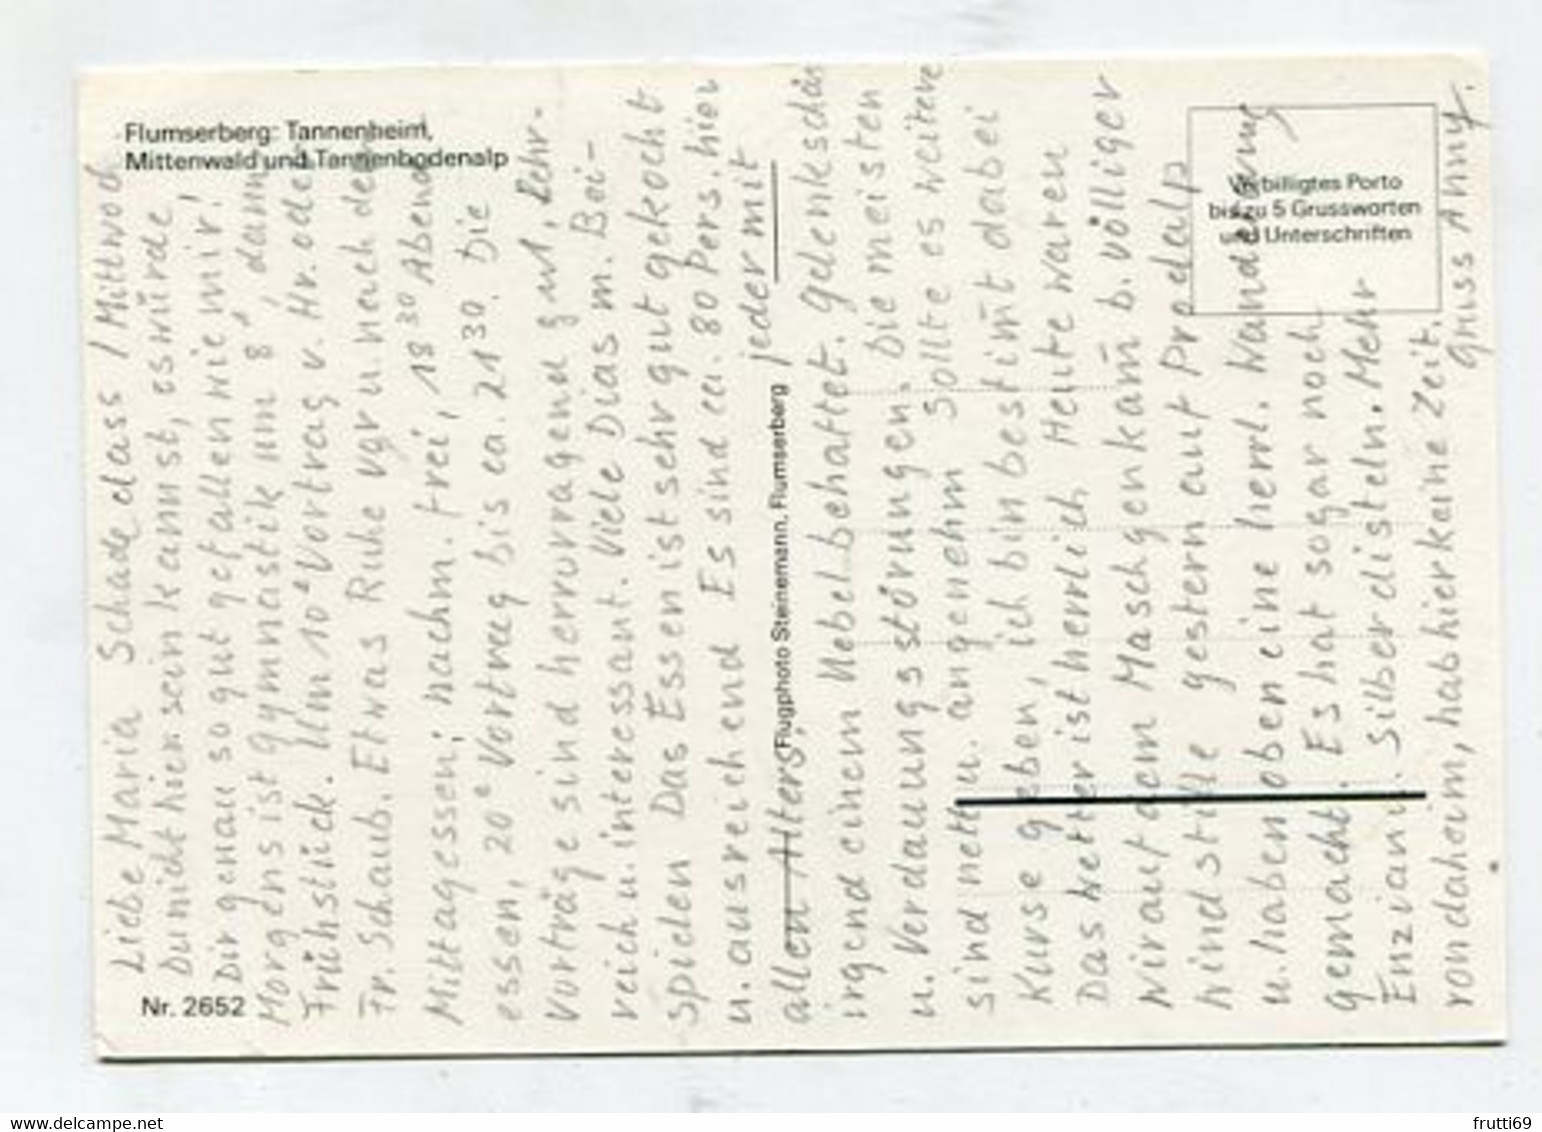 Flumserberg: Tannenheim,
Mittenwald und Tannenbodenalp
Verbilligtes Porto
bis zu 5 Grussworten
und Unterschriften
Nr. 2652
Flugphoto Steinemann, Flumserberg
Liebe Maria Schade dass / Mittwoch
Du nicht hier sein kannst, es würde
Dir genau so gut gefallen wie mir!
Morgens ist Gymnastik um 8°, dann
Frühstück. Um 10° Vortrag v. Hr. oder
Fr. Schaub. Etwas Ruhe vor u. nach dem
Mittagessen, nachm. frei, 18 30 Abend
essen, 20° Vortrag bis ca. 21 30. Die
Vorträge sind hervorragend gut, Lehr-
reich u. interessant. Viele Dias m. Bei-
spielen Das Essen ist sehr gut gekocht
u. ausreichend Es sind ca. 80 Pers. hier
allen Alters. jeder mit
irgend einem Uebel behaftet. Gelenkschä
u. Verdauungsstörungen. Die meisten
sind nett u. angenehm Sollte es weitere
Kurse geben, ich bin bestimt dabei
Das Wetter ist herrlich Heute waren
wir auf dem Maschgenkam b. völliger
Windstille gestern auf Prodalp
u. haben oben eine herrl. Wanderung
gemacht. Es hat sogar noch
Enziani. Silberdisteln. Mehr
von daheim, hab hier keine Zeit.
Gruss Anny.
delcampe.net
frutti69